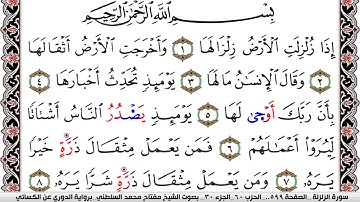 بِسْمِ اللَّهِ الرَّحْمَٰنِ الرَّحِيمِ
إِذَا زُلْزِلَتِ الْأَرْضُ زِلْزَالَهَا ١ وَأَخْرَجَتِ الْأَرْضُ أَثْقَالَهَا
٢ وَقَالَ الْإِنسَٰنُ مَا لَهَا ٣ يَوْمَئِذٍ تُحَدِّثُ أَخْبَارَهَا ٤
بِأَنَّ رَبَّكَ أَوْحَىٰ لَهَا ٥ يَوْمَئِذٍ يَصْدُرُ النَّاسُ أَشْتَاتًا
لِّيُرَوْا أَعْمَٰلَهُمْ ٦ فَمَن يَعْمَلْ مِثْقَالَ ذَرَّةٍ خَيْرًا
يَرَهُۥ ٧ وَمَن يَعْمَلْ مِثْقَالَ ذَرَّةٍ شَرًّا يَرَهُۥ ٨
سورة الزلزلة . الصفحة ٥٩٩ . الحزب ٦٠ . الجزء ٣٠ . بصوت الشيخ مفتاح محمد السلطني . برواية الدوري عن الكسائي